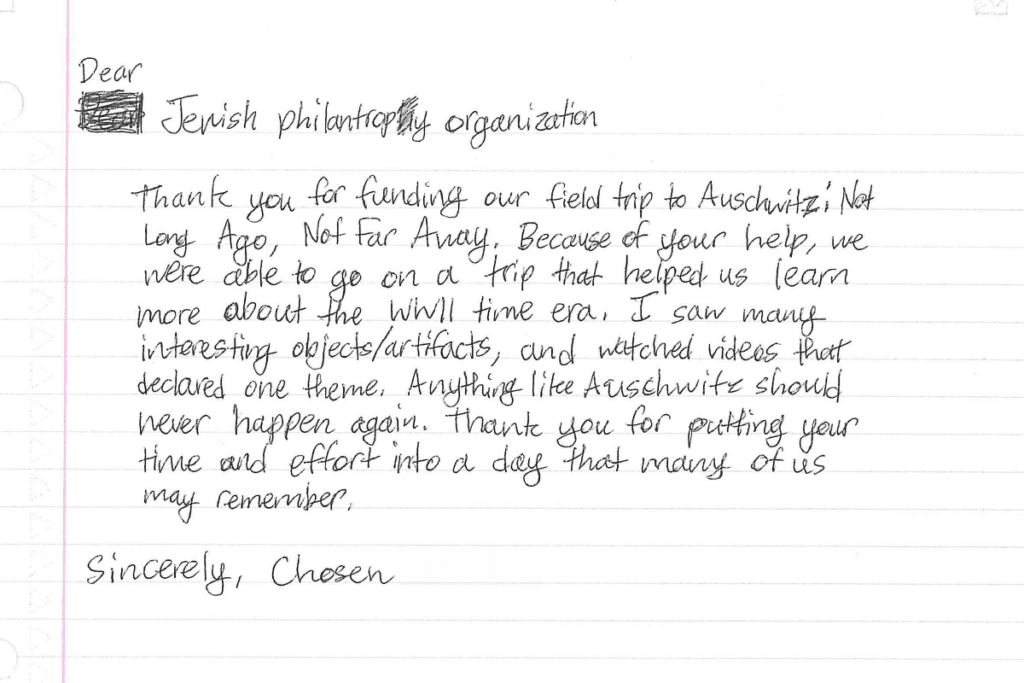 Dear
Jewish philantropy organization
Thank you for funding our field trip to Auschwitz: Not
Long Ago, Not Far Away. Because of your help, we
were able to go on a trip that helped us learn
more about the WWII time era. I saw many
interesting objects/artifacts, and watched videos that
declared one theme. Anything like Auschwitz should
never happen again. Thank you for putting your
time and effort into a day that many of us
may remember.
Sincerely, Chosen